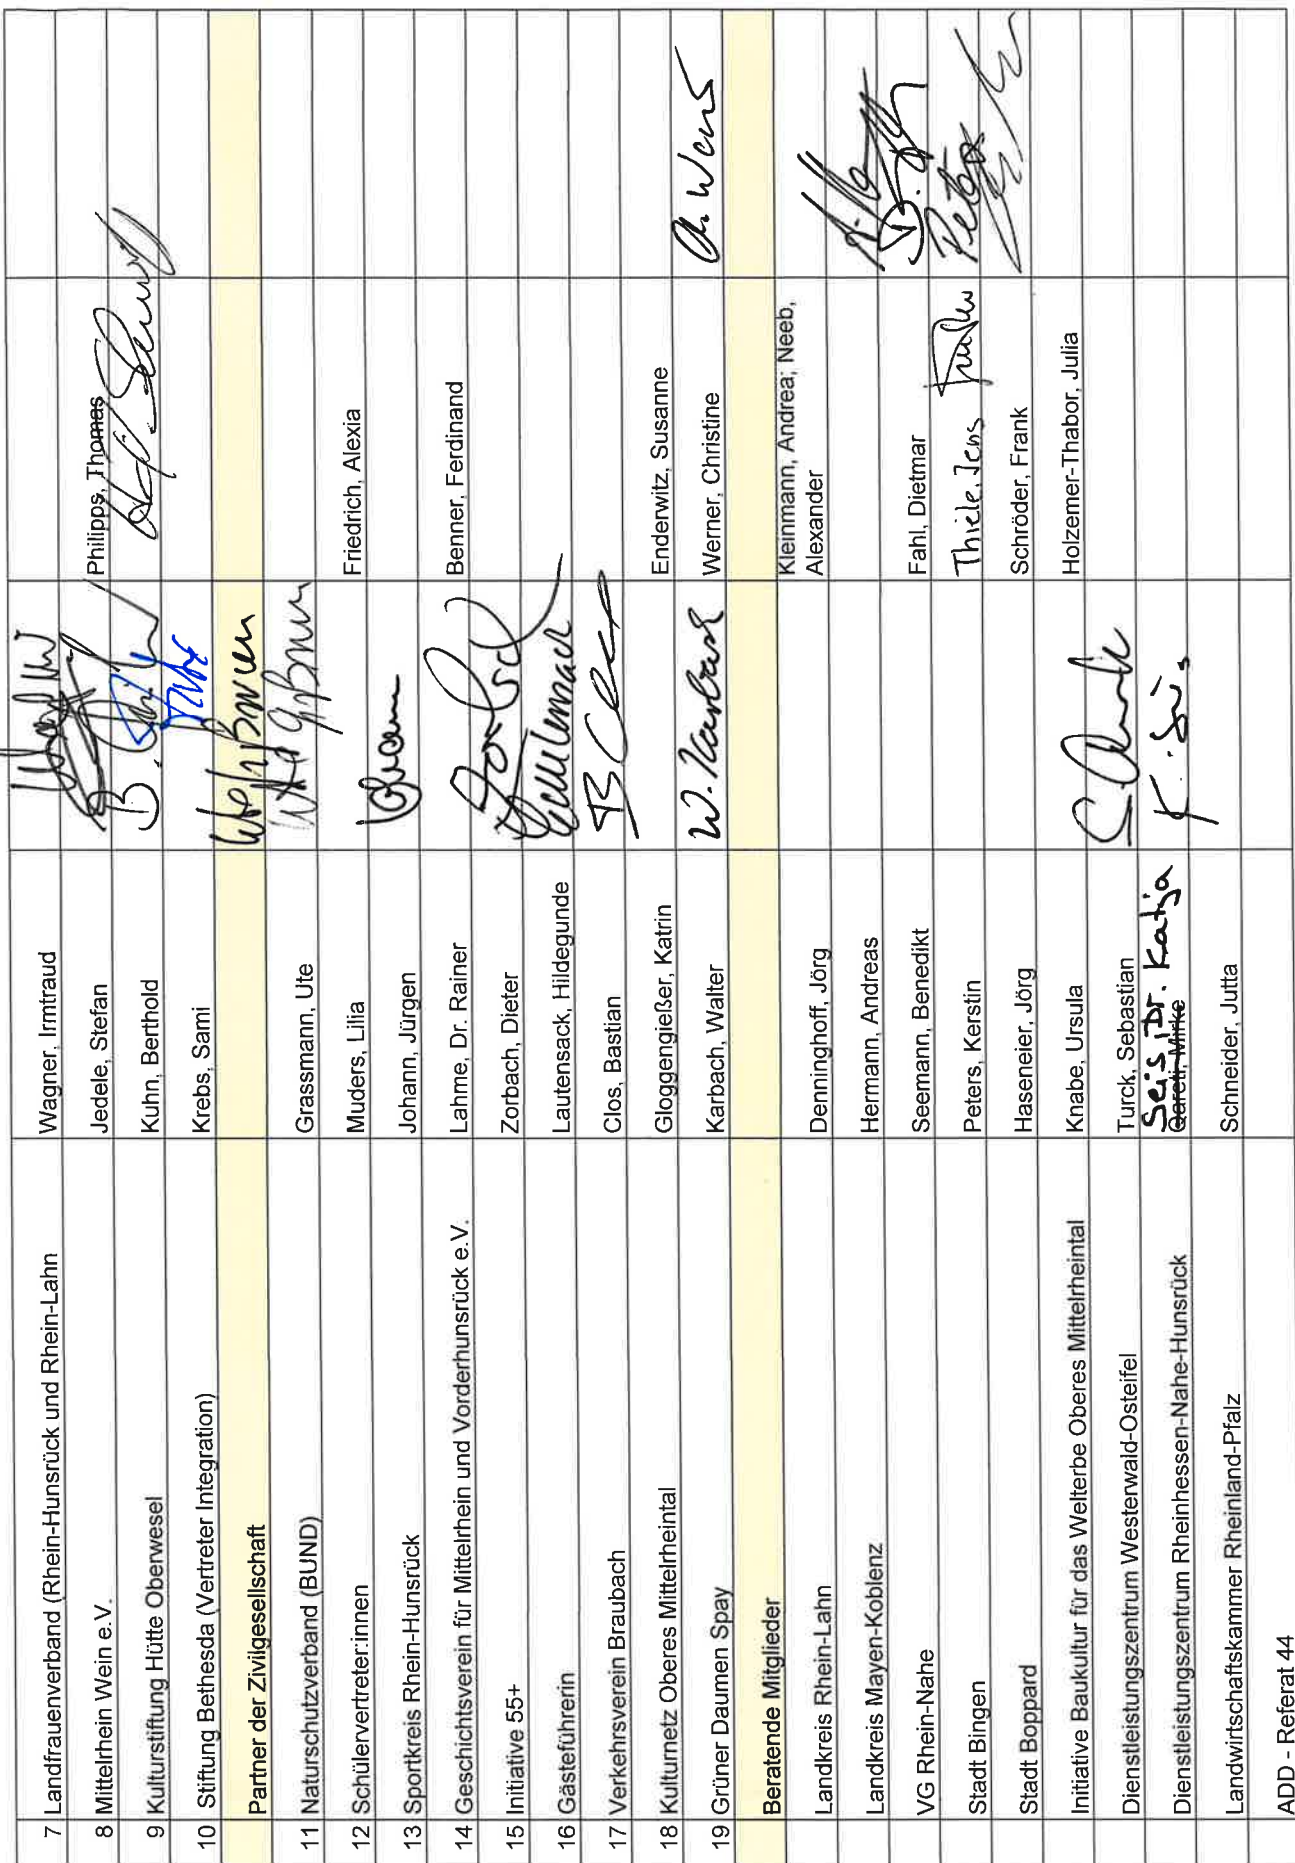 7 Landfrauenverband (Rhein-Hunsrück und Rhein-Lahn Wagner, Irmtraud
8 Mittelrhein Wein e.V. Jedele, Stefan Philipps, Thomas
9 Kulturstiftung Hütte Oberwesel Kuhn, Berthold
10 Stiftung Bethesda (Vertreter Integration) Krebs, Sami
Partner der Zivilgesellschaft
11 Naturschutzverband (BUND) Grassmann, Ute
12 Schülervertreter:innen Muders, Lilia Friedrich, Alexia
13 Sportkreis Rhein-Hunsrück Johann, Jürgen
14 Geschichtsverein für Mittelrhein und Vorderhunsrück e.V. Lahme, Dr. Rainer Benner, Ferdinand
15 Initiative 55+ Zorbach, Dieter
16 Gästeführerin Lautensack, Hildegunde
17 Verkehrsverein Braubach Clos, Bastian
18 Kulturnetz Oberes Mittelrheintal Gloggengießer, Katrin Enderwitz, Susanne
19 Grüner Daumen Spay Karbach, Walter W. Karbach Werner, Christine
Beratende Mitglieder
Landkreis Rhein-Lahn Denninghoff, Jörg Kleinmann, Andrea; Neeb, Alexander
Landkreis Mayen-Koblenz Hermann, Andreas
VG Rhein-Nahe Seemann, Benedikt Fahl, Dietmar
Stadt Bingen Peters, Kerstin Thiele, Jens Peters
Stadt Boppard Haseneier, Jörg Schröder, Frank
Initiative Baukultur für das Welterbe Oberes Mittelrheintal Knabe, Ursula Holzemer-Thabor, Julia
Dienstleistungszentrum Westerwald-Osteifel Turck, Sebastian
Dienstleistungszentrum Rheinhessen-Nahe-Hunsrück Seis, Dr. Katja
Landwirtschaftskammer Rheinland-Pfalz Schneider, Jutta
ADD - Referat 44